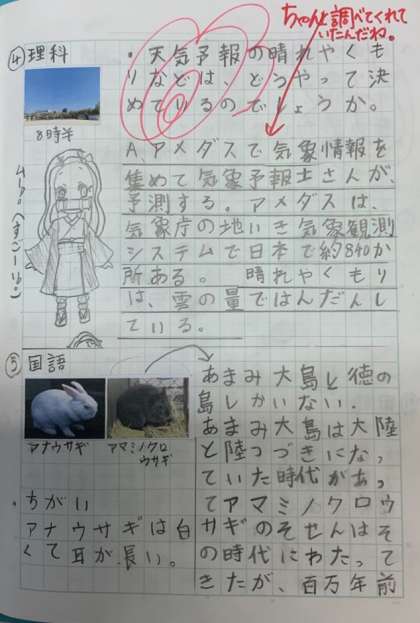 ちゃんと調べてくれて
いたんだね。
④理科
・天気予報の晴れやくも
りなどは、どうやって決
めているのでしょうか。
8時半
A、アメダスで気象情報を
集めて気象予報士さんが、
予測する。アメダスは、
気象庁の地いき気象観測
システムで日本で約840か
所ある。 晴れやくもり
は、雲の量ではんだんし
ている。
⑤国語
アナウサギ
アマミノクロ
ウサギ
ちがい
アナウサギは白
くて耳が、長い。
あまみ大島と徳の
島しかいない.
あまみ大島は大陸
と陸つづきになっ
ていた時代があっ
てアマミノクロウ
サギのそせんはそ
の時代にわたって
きたが、百万年前